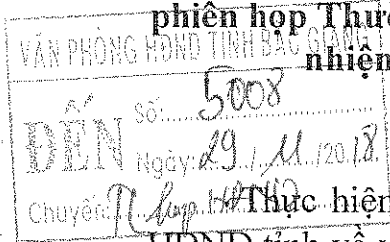 phiên họp Thườ
VĂN PHÒNG HĐND TỈNH BẮC GIANG
nhiệm
ĐẾN
Số: 5008
Ngày: 29/11/2018
Chuyển:
Thực hiện
HĐND tỉnh về